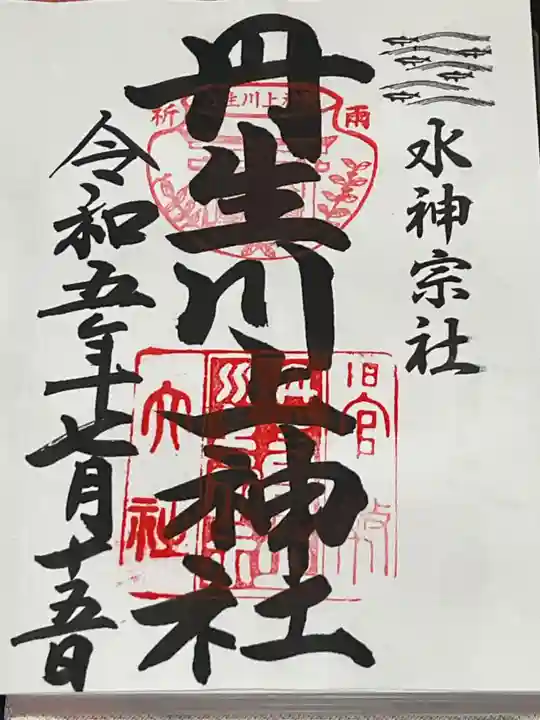 水神宗社
丹生川上神社
令和五年七月十五日
上川生
雨
祈
旧官幣
大社